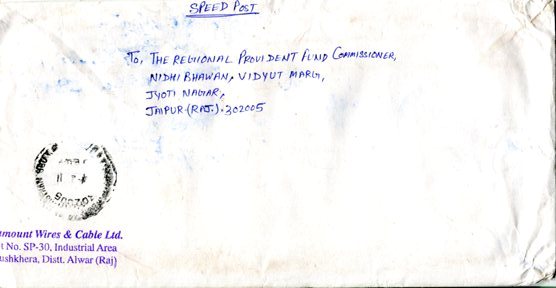 SPEED POST
To, THE REGIONAL PROVIDENT FUND COMMISSIONER,
NIDHI BHAWAN, VIDYUT MARG,
JYOTI NAGAR,
JAIPUR-(RAJ.).302005
302005
amount Wires & Cable Ltd.
t No. SP-30, Industrial Area
ushkhera, Distt. Alwar (Raj)